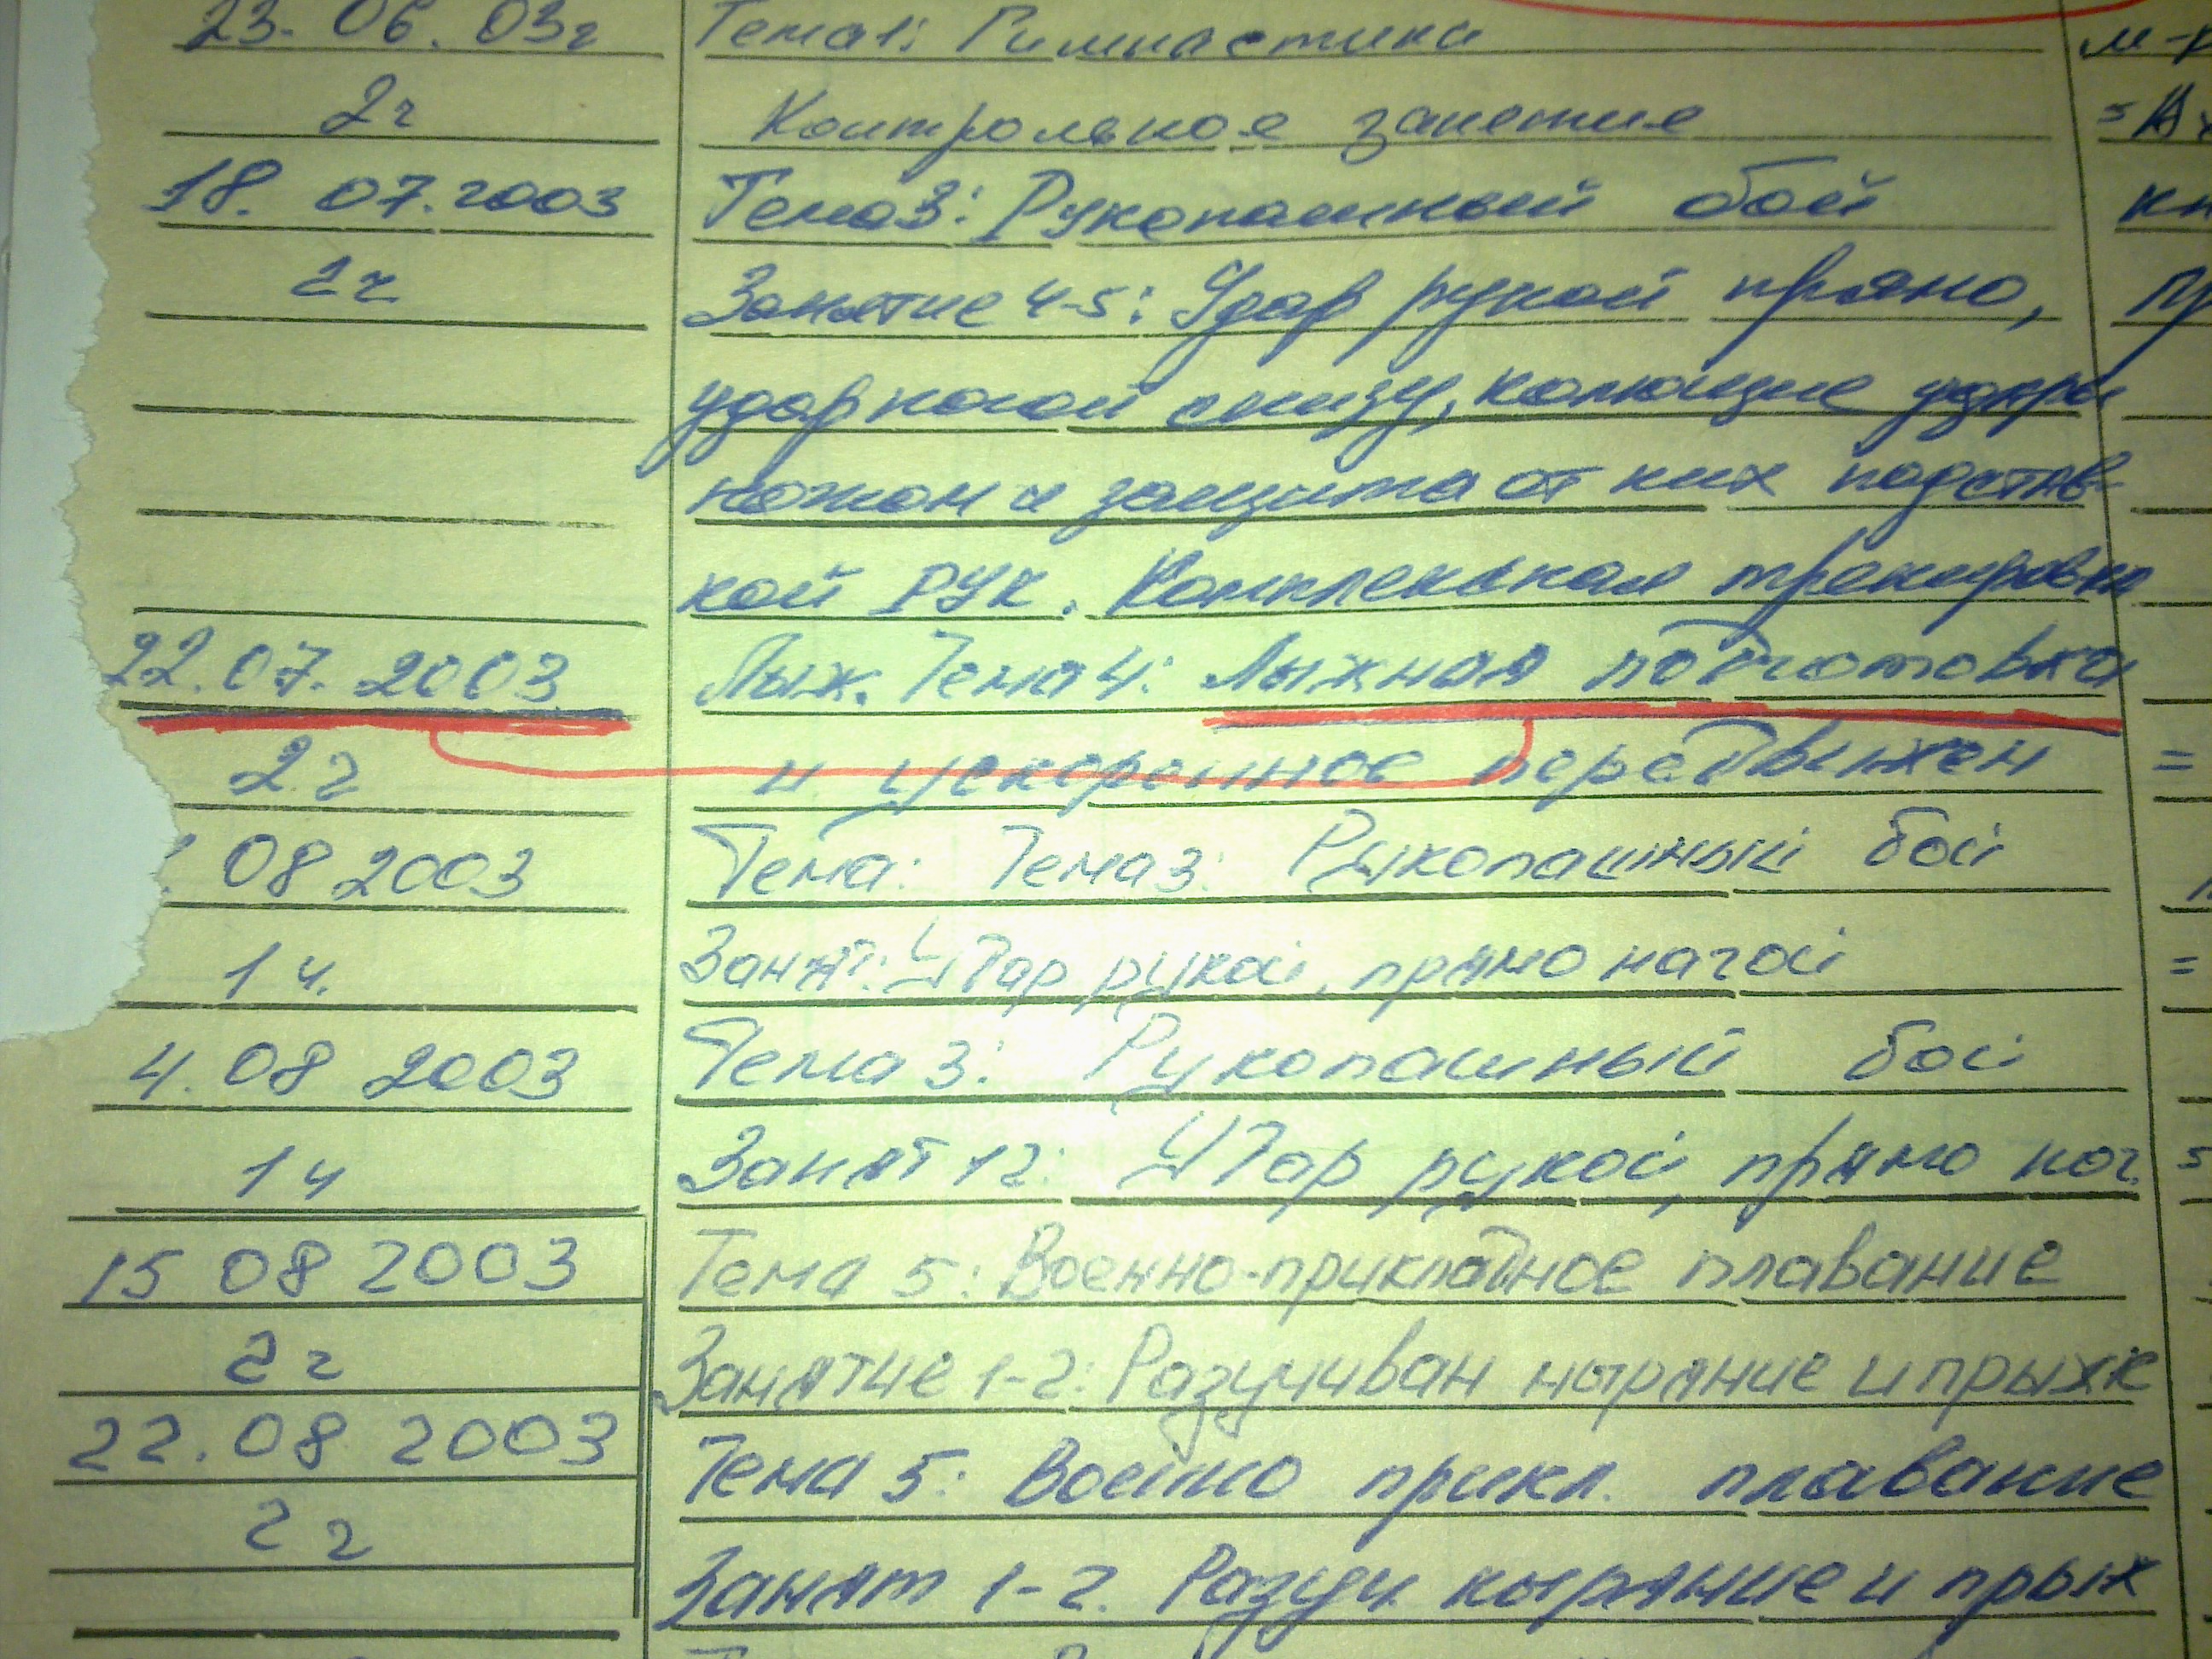 23. 06. 03г Тема1: Гимнастика
2ч Контрольное занетие
18. 07. 2003 Тема3: Рукопашный бой
2ч Занятие 4-5: Удар рукой прямо,
удар ногой снизу, колющие удары
ножом и защита от них подстав-
кой РУК. Комплексная тренировка
22.07. 2003 Лыж. Тема 4: Лыжная подготовка
2ч и ускоренное передвижен =
08 2003 Тема: Тема 3: Рукопашный бой
1 ч. Занят: Удар рукой, прямо нагой =
4. 08 2003 Тема 3: Рукопашный бой
1 ч Занят 12: Удар рукой, прямо ног. 5
15 08 2003 Тема 5: Военно-прикладное плавание
2ч Занятие 1-2: Разучиван ныряние и прыжк
22. 08 2003 Тема 5: Военно прикл. плавание
2ч
Занят 1-2. Разуч. ныряние и прыж